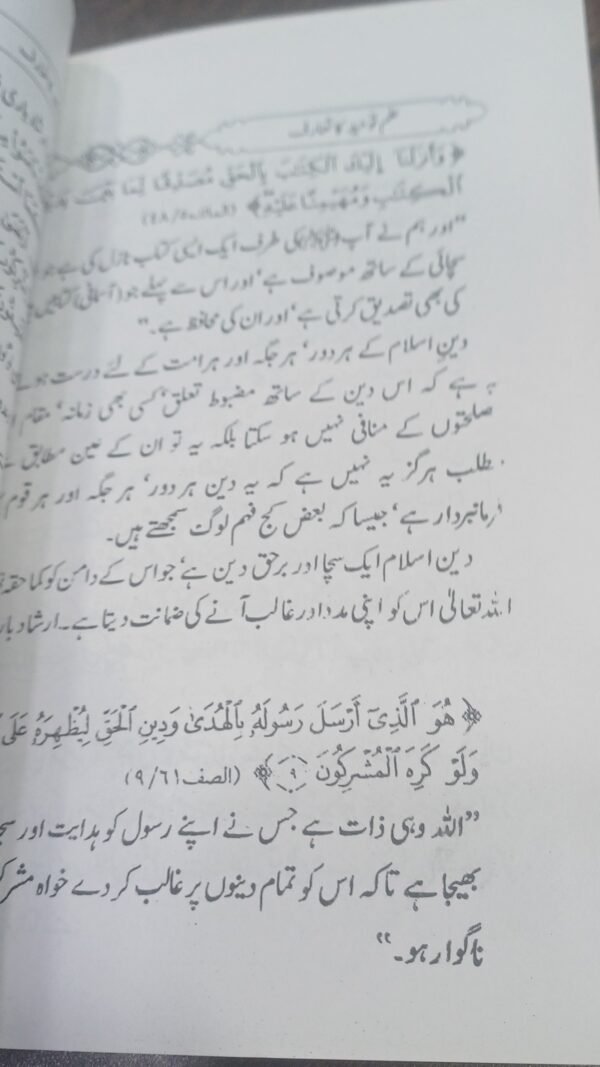 علم توحید کا تعارف
﴿ وَأَنزَلْنَا إِلَيْكَ الْكِتَٰبَ بِالْحَقِّ مُصَدِّقًا لِّمَا بَيْنَ
الْكِتَٰبِ وَمُهَيْمِنًا عَلَيْهِ ﴾ (المائدۃ ٥/٤٨)
”اور ہم نے آپ (ﷺ) کی طرف ایک ایسی کتاب نازل کی ہے جو
سچائی کے ساتھ موصوف ہے‘ اور اس سے پہلے جو (آسمانی) کتابیں
کی بھی تصدیق کرتی ہے‘ اور ان کی محافظ ہے۔“
دین اسلام کے ہر دور‘ ہر جگہ اور ہر امت کے لئے درست ہونے
یہ ہے کہ اس دین کے ساتھ مضبوط تعلق‘ کسی بھی زمانہ‘ مقام
صلحتوں کے منافی نہیں ہو سکتا بلکہ یہ تو ان کے عین مطابق ہے
طلب ہرگز یہ نہیں ہے کہ یہ دین ہر دور‘ ہر جگہ اور ہر قوم
رمانبردار ہے‘ جیسا کہ بعض کج فہم لوگ سمجھتے ہیں۔
دین اسلام ایک سچا اور برحق دین ہے‘ جو اس کے دامن کو کما حقہ
اللہ تعالیٰ اس کو اپنی مدد اور غالب آنے کی ضمانت دیتا ہے۔ ارشاد بار
﴿ هُوَ ٱلَّذِىٓ أَرْسَلَ رَسُولَهُۥ بِٱلْهُدَىٰ وَدِينِ ٱلْحَقِّ لِيُظْهِرَهُۥ عَلَى
وَلَوْ كَرِهَ ٱلْمُشْرِكُونَ ٩ ﴾ (الصف ٦١/٩)
”اللہ وہی ذات ہے جس نے اپنے رسول کو ہدایت اور سچ
بھیجا ہے تاکہ اس کو تمام دینوں پر غالب کر دے خواہ مشر
ناگوار ہو۔“